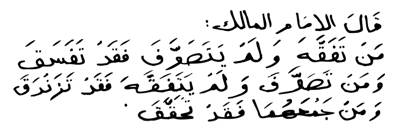 قَالَ الاِمَام المَالك:
مَنْ تَفَقَّهَ وَلَمْ يَتَصَوَّفَ فَقَدْ تَفَسَقَ
وَمَنْ تَصَوَّفَ وَلَمْ يَتَفَقَّهَ فَقَدْ تَزَنْدَقَ
وَمَنْ جَمَعَهُمَا فَقَدْ تَحَقَّقَ.